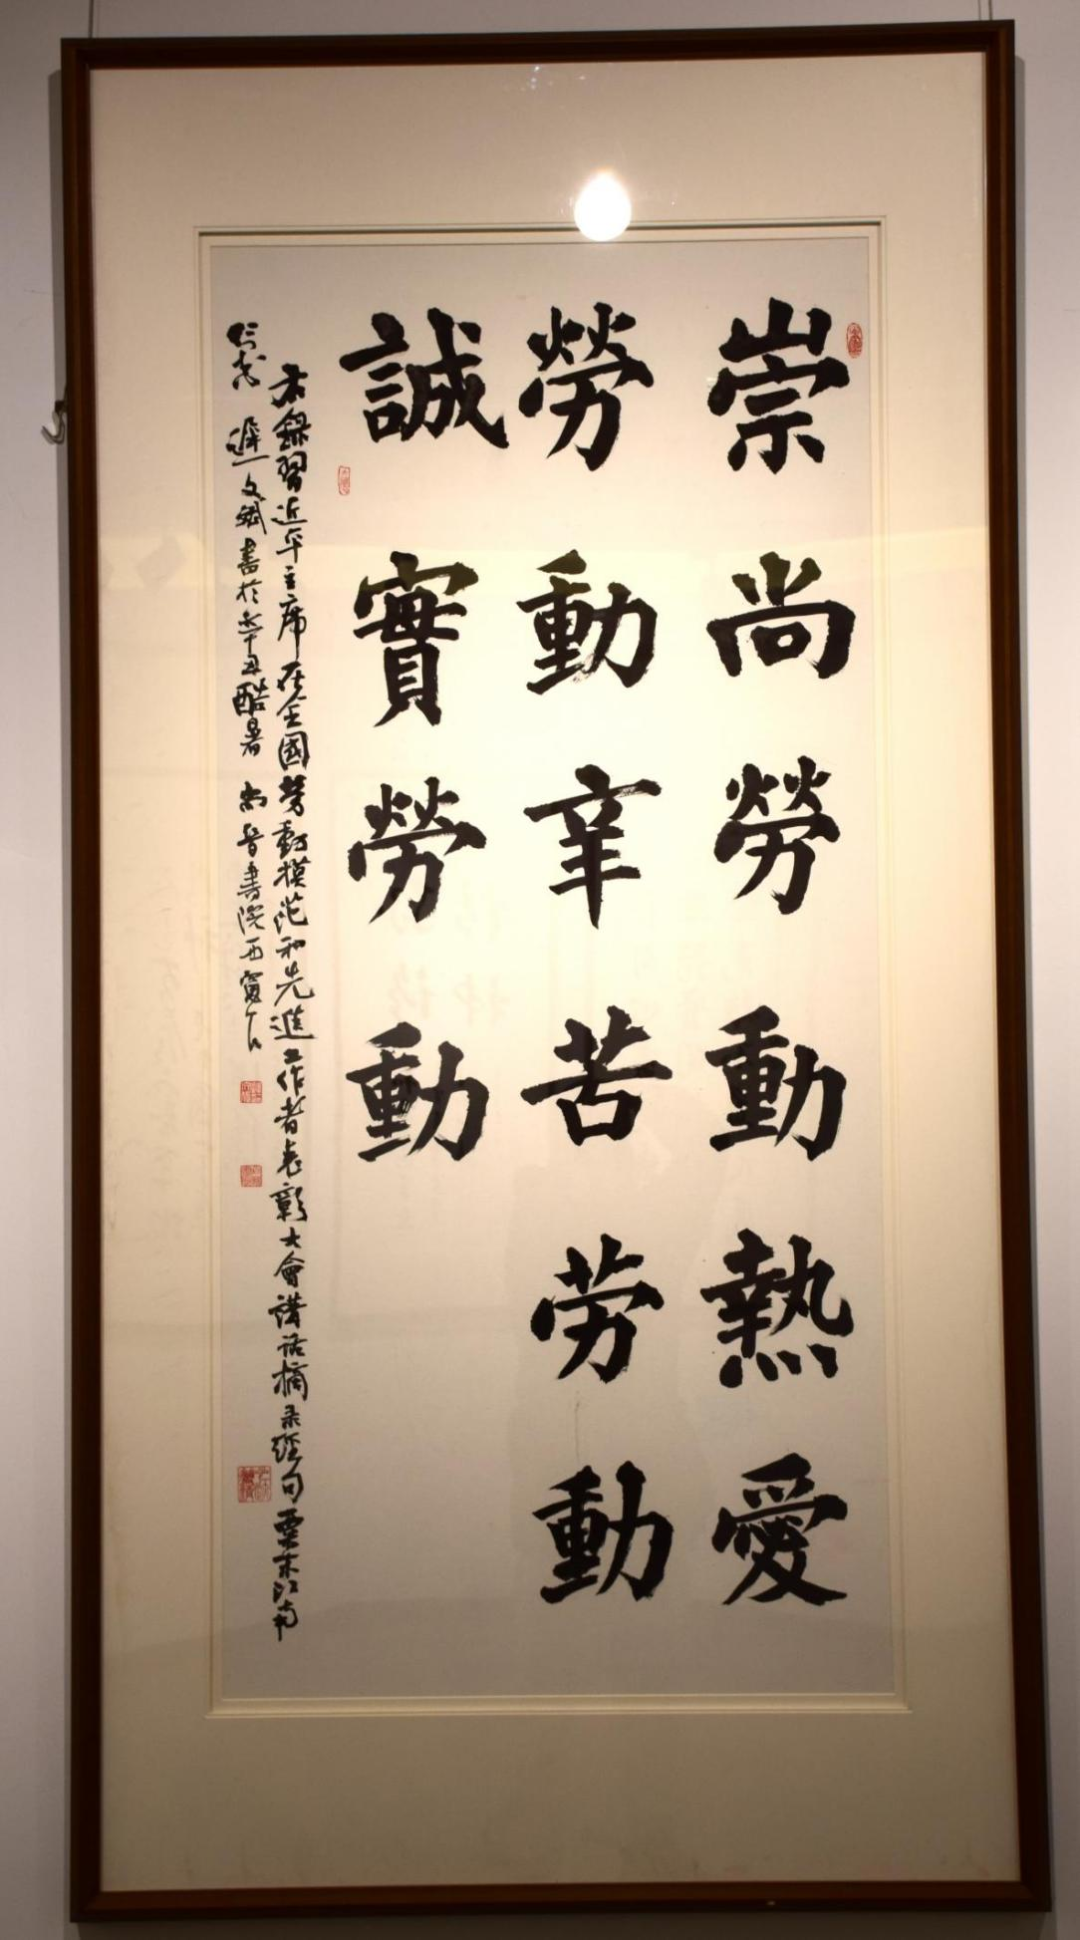 崇尚勞動熱愛
勞動辛苦劳動
誠實勞動
右錄習近平主席在全國勞動模范和先進工作者表彰大會講話摘录經句栗木江南
遲文斌書於辛丑酷暑尚晋書院西窗下